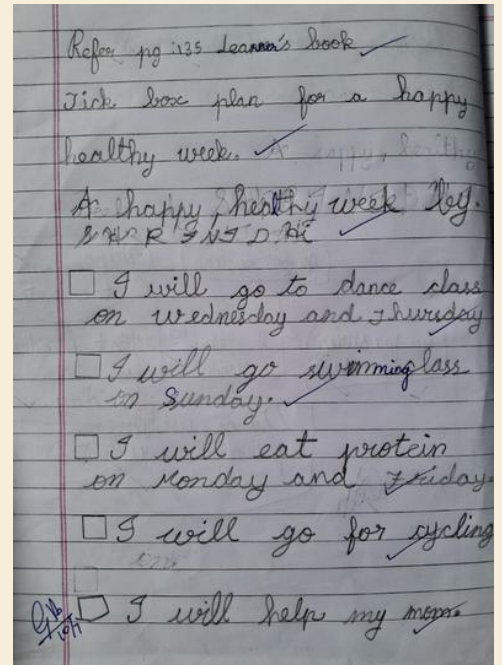 Refer pg :135 Learner's book
Tick box plan for a happy
healthy week.
A happy, healthy week by.
SHRINIDHI
I will go to dance class
on wednesday and Thursday
I will go swimming class
on Sunday.
I will eat protein
on Monday and Friday.
I will go for cycling
I will help my mom.